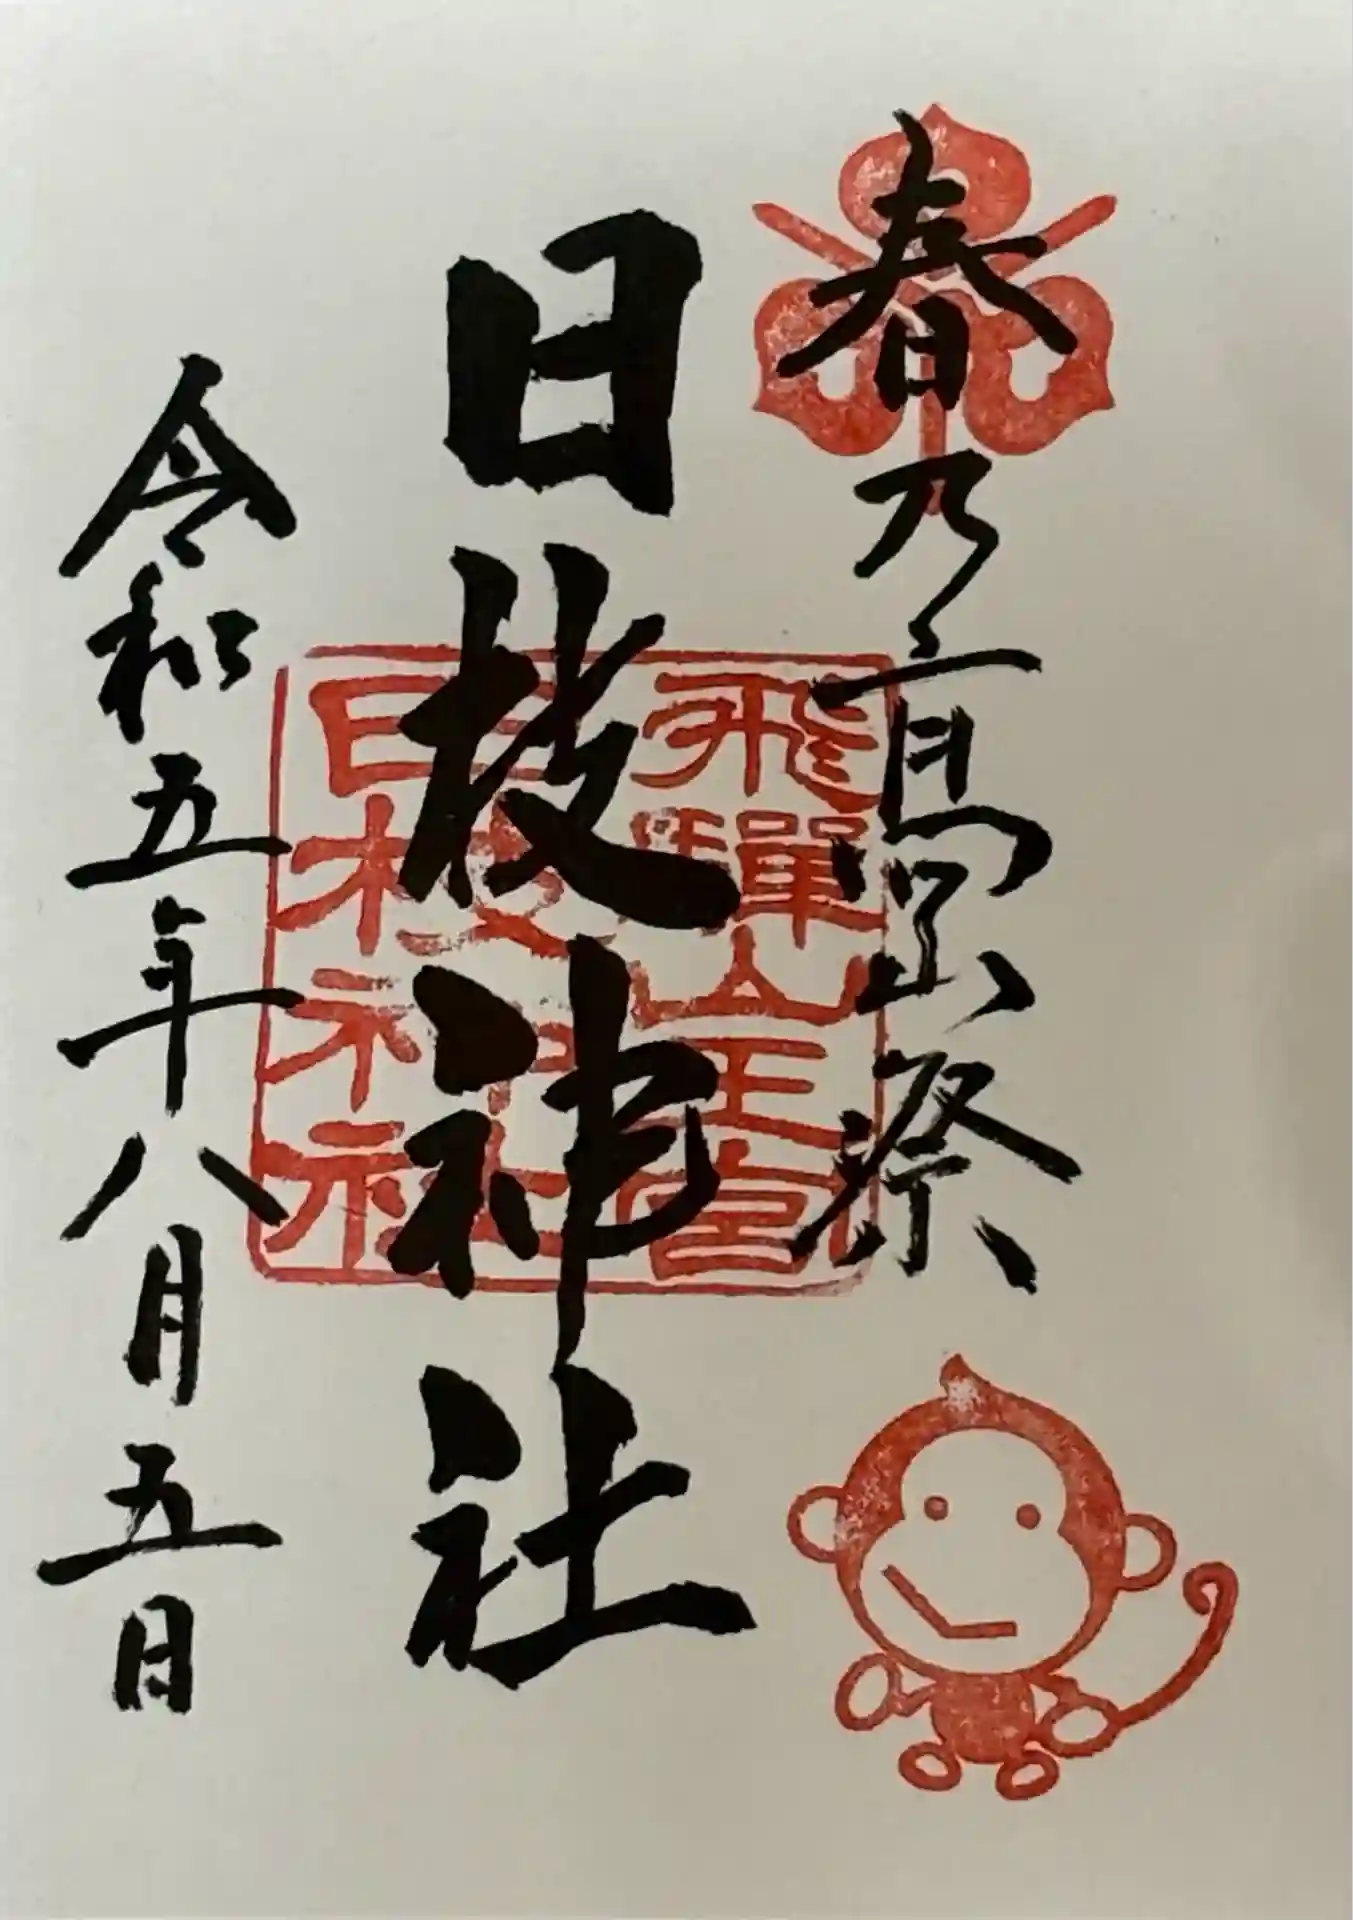 春乃高山祭
日枝神社
令和五年八月五日
飛騨山王宮
日枝神社